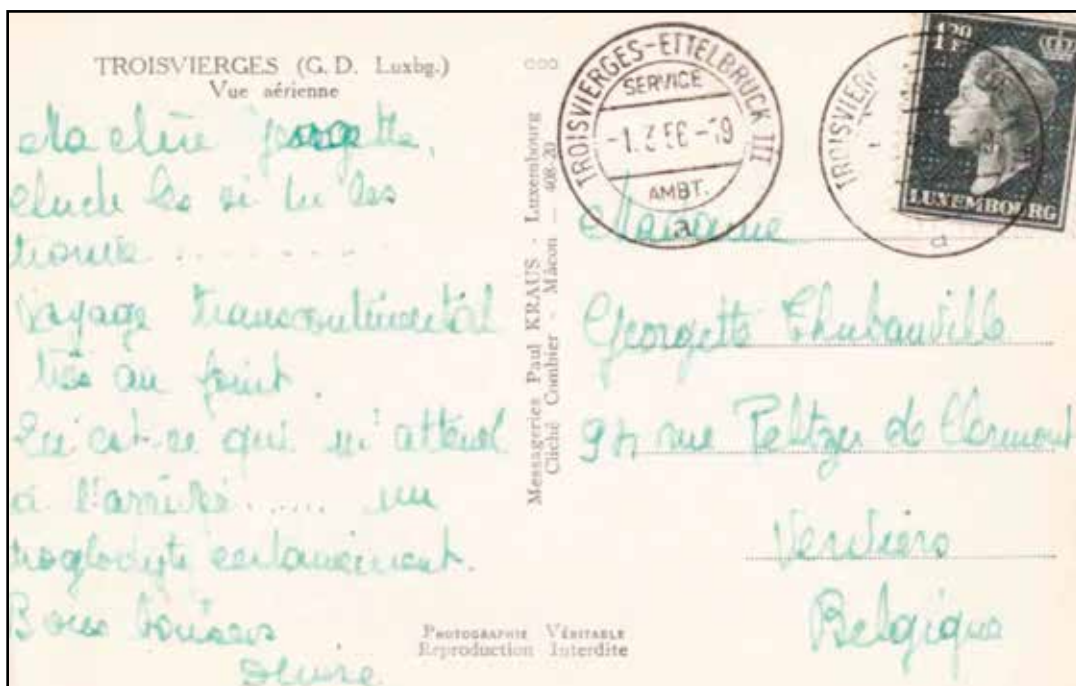 TROISVIERGES (G. D. Luxbg.)
Vue aérienne
Ma chère Georgette,
si tu les
trouve ........
Voyage transcontinental
très au point.
Qu'est-ce qui m'attend
à l'arrivée ..... un
troglodyte certainement.
Bons baisers
Messageries Paul KRAUS - Luxembourg
Cliché Combier - Mâcon — 408-20
PHOTOGRAPHIE VÉRITABLE
Reproduction Interdite
TROISVIERGES-ETTELBRUCK III
SERVICE
AMBT.
a
TROISVIER
a
LUXEMBOURG
Georgette Thubauville
rue Peltzer de Clermont
Verviers
Belgique